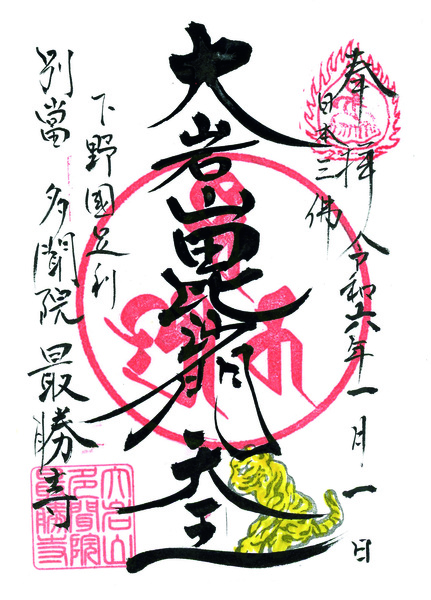 奉拝
日本三佛
令和六年一月一日
大岩山毘沙門天王
下野國足利
別當 多聞院 最勝寺
大岩山
多聞院
最勝寺